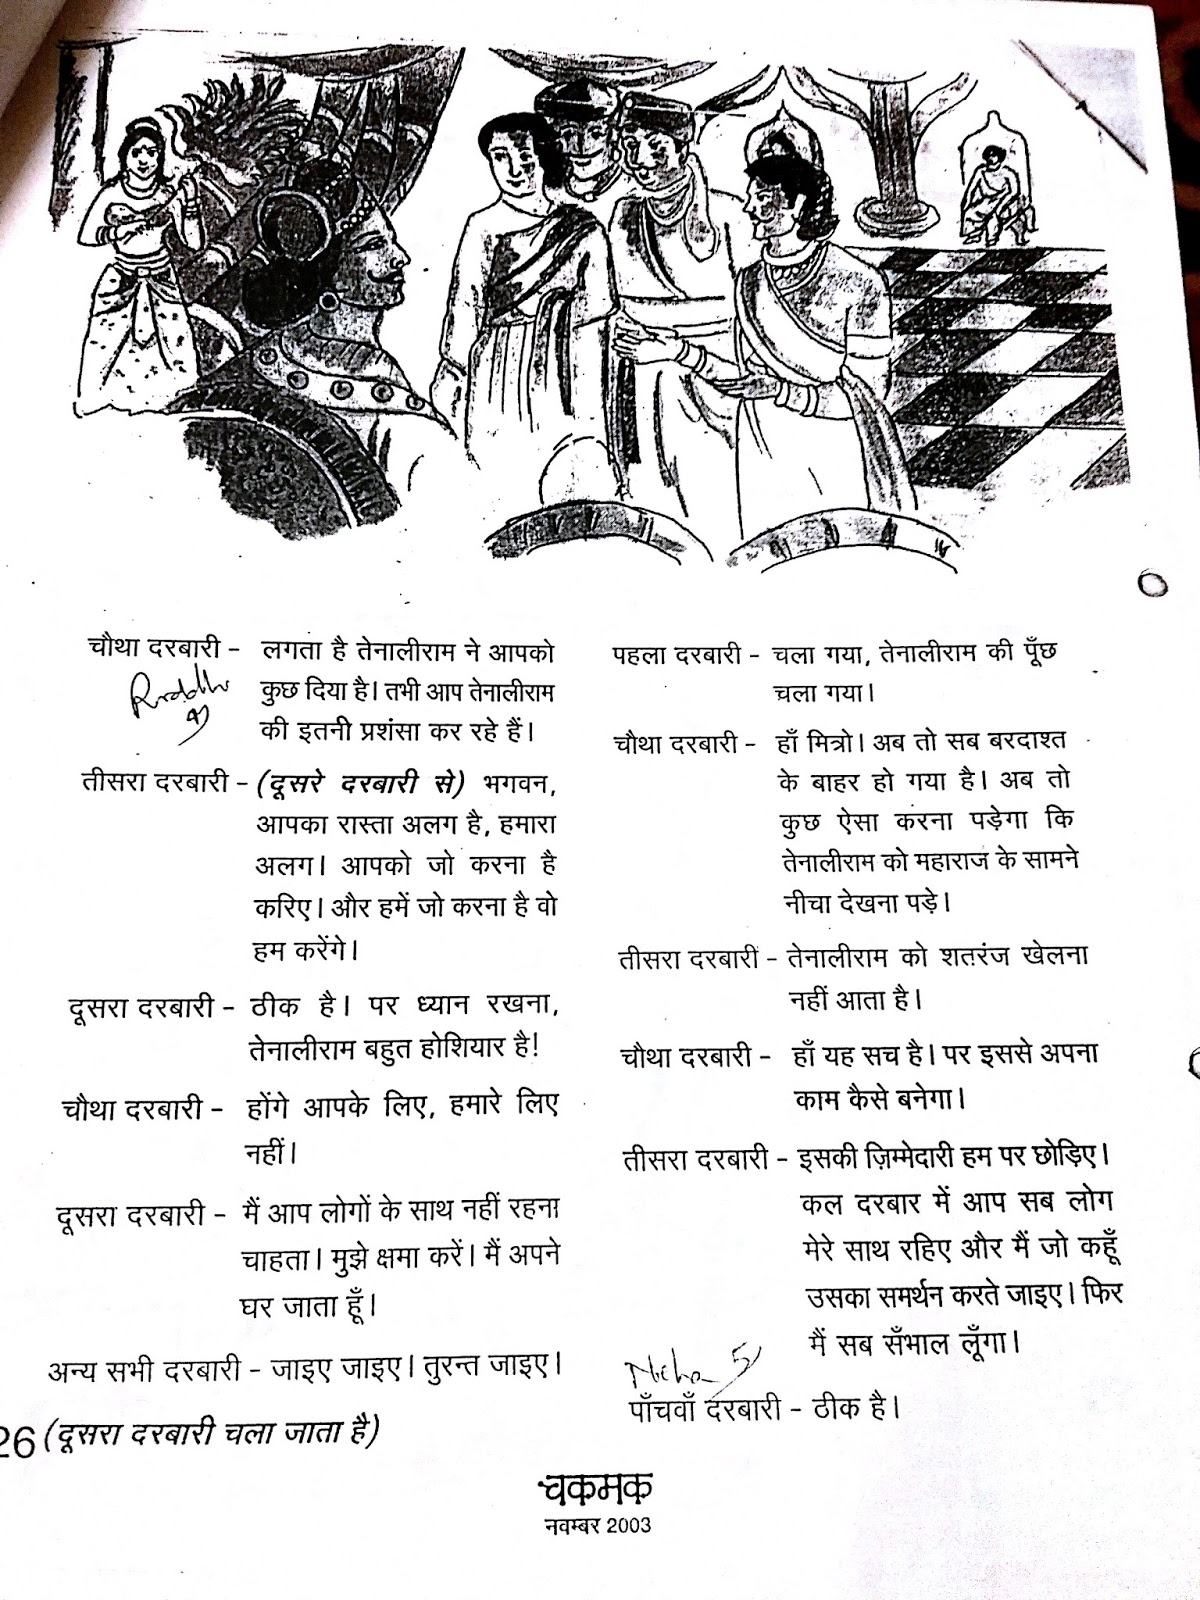 चौथा दरबारी – लगता है तेनालीराम ने आपको
कुछ दिया है। तभी आप तेनालीराम
की इतनी प्रशंसा कर रहे हैं।
तीसरा दरबारी – (दूसरे दरबारी से) भगवन,
आपका रास्ता अलग है, हमारा
अलग। आपको जो करना है
करिए। और हमें जो करना है वो
हम करेंगे।
दूसरा दरबारी – ठीक है। पर ध्यान रखना,
तेनालीराम बहुत होशियार है!
चौथा दरबारी – होंगे आपके लिए, हमारे लिए
नहीं।
दूसरा दरबारी – मैं आप लोगों के साथ नहीं रहना
चाहता। मुझे क्षमा करें। मैं अपने
घर जाता हूँ।
अन्य सभी दरबारी – जाइए जाइए। तुरन्त जाइए।
26 (दूसरा दरबारी चला जाता है)
पहला दरबारी – चला गया, तेनालीराम की पूँछ
चला गया।
चौथा दरबारी – हाँ मित्रो। अब तो सब बरदाश्त
के बाहर हो गया है। अब तो
कुछ ऐसा करना पड़ेगा कि
तेनालीराम को महाराज के सामने
नीचा देखना पड़े।
तीसरा दरबारी – तेनालीराम को शतरंज खेलना
नहीं आता है।
चौथा दरबारी – हाँ यह सच है। पर इससे अपना
काम कैसे बनेगा।
तीसरा दरबारी – इसकी ज़िम्मेदारी हम पर छोड़िए।
कल दरबार में आप सब लोग
मेरे साथ रहिए और मैं जो कहूँ
उसका समर्थन करते जाइए। फिर
मैं सब सँभाल लूँगा।
Neha 5)
पाँचवाँ दरबारी – ठीक है।
चकमक
नवम्बर 2003